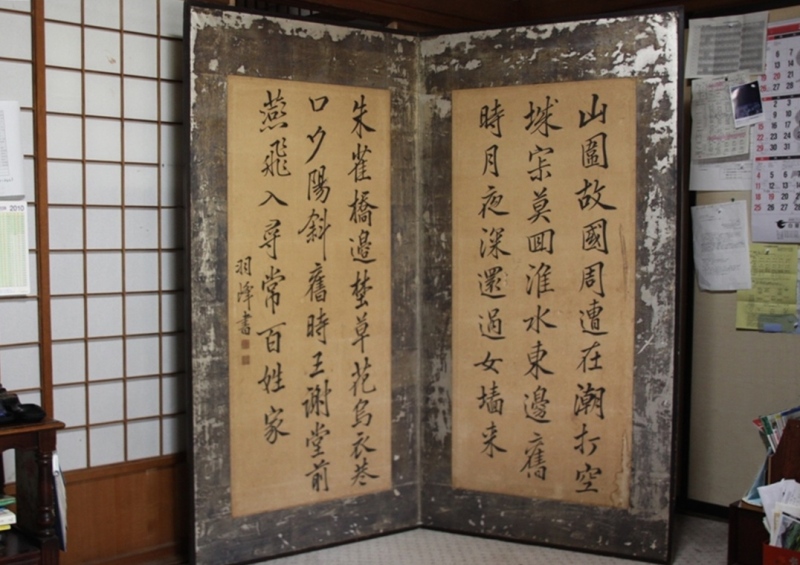 山圍故國周遭在潮打空
城寂莫回淮水東邊舊
時月夜深還過女墻来
朱雀橋邊埜草花烏衣巷
口夕陽斜舊時王謝堂前
燕飛入尋常百姓家
羽峰書
2010